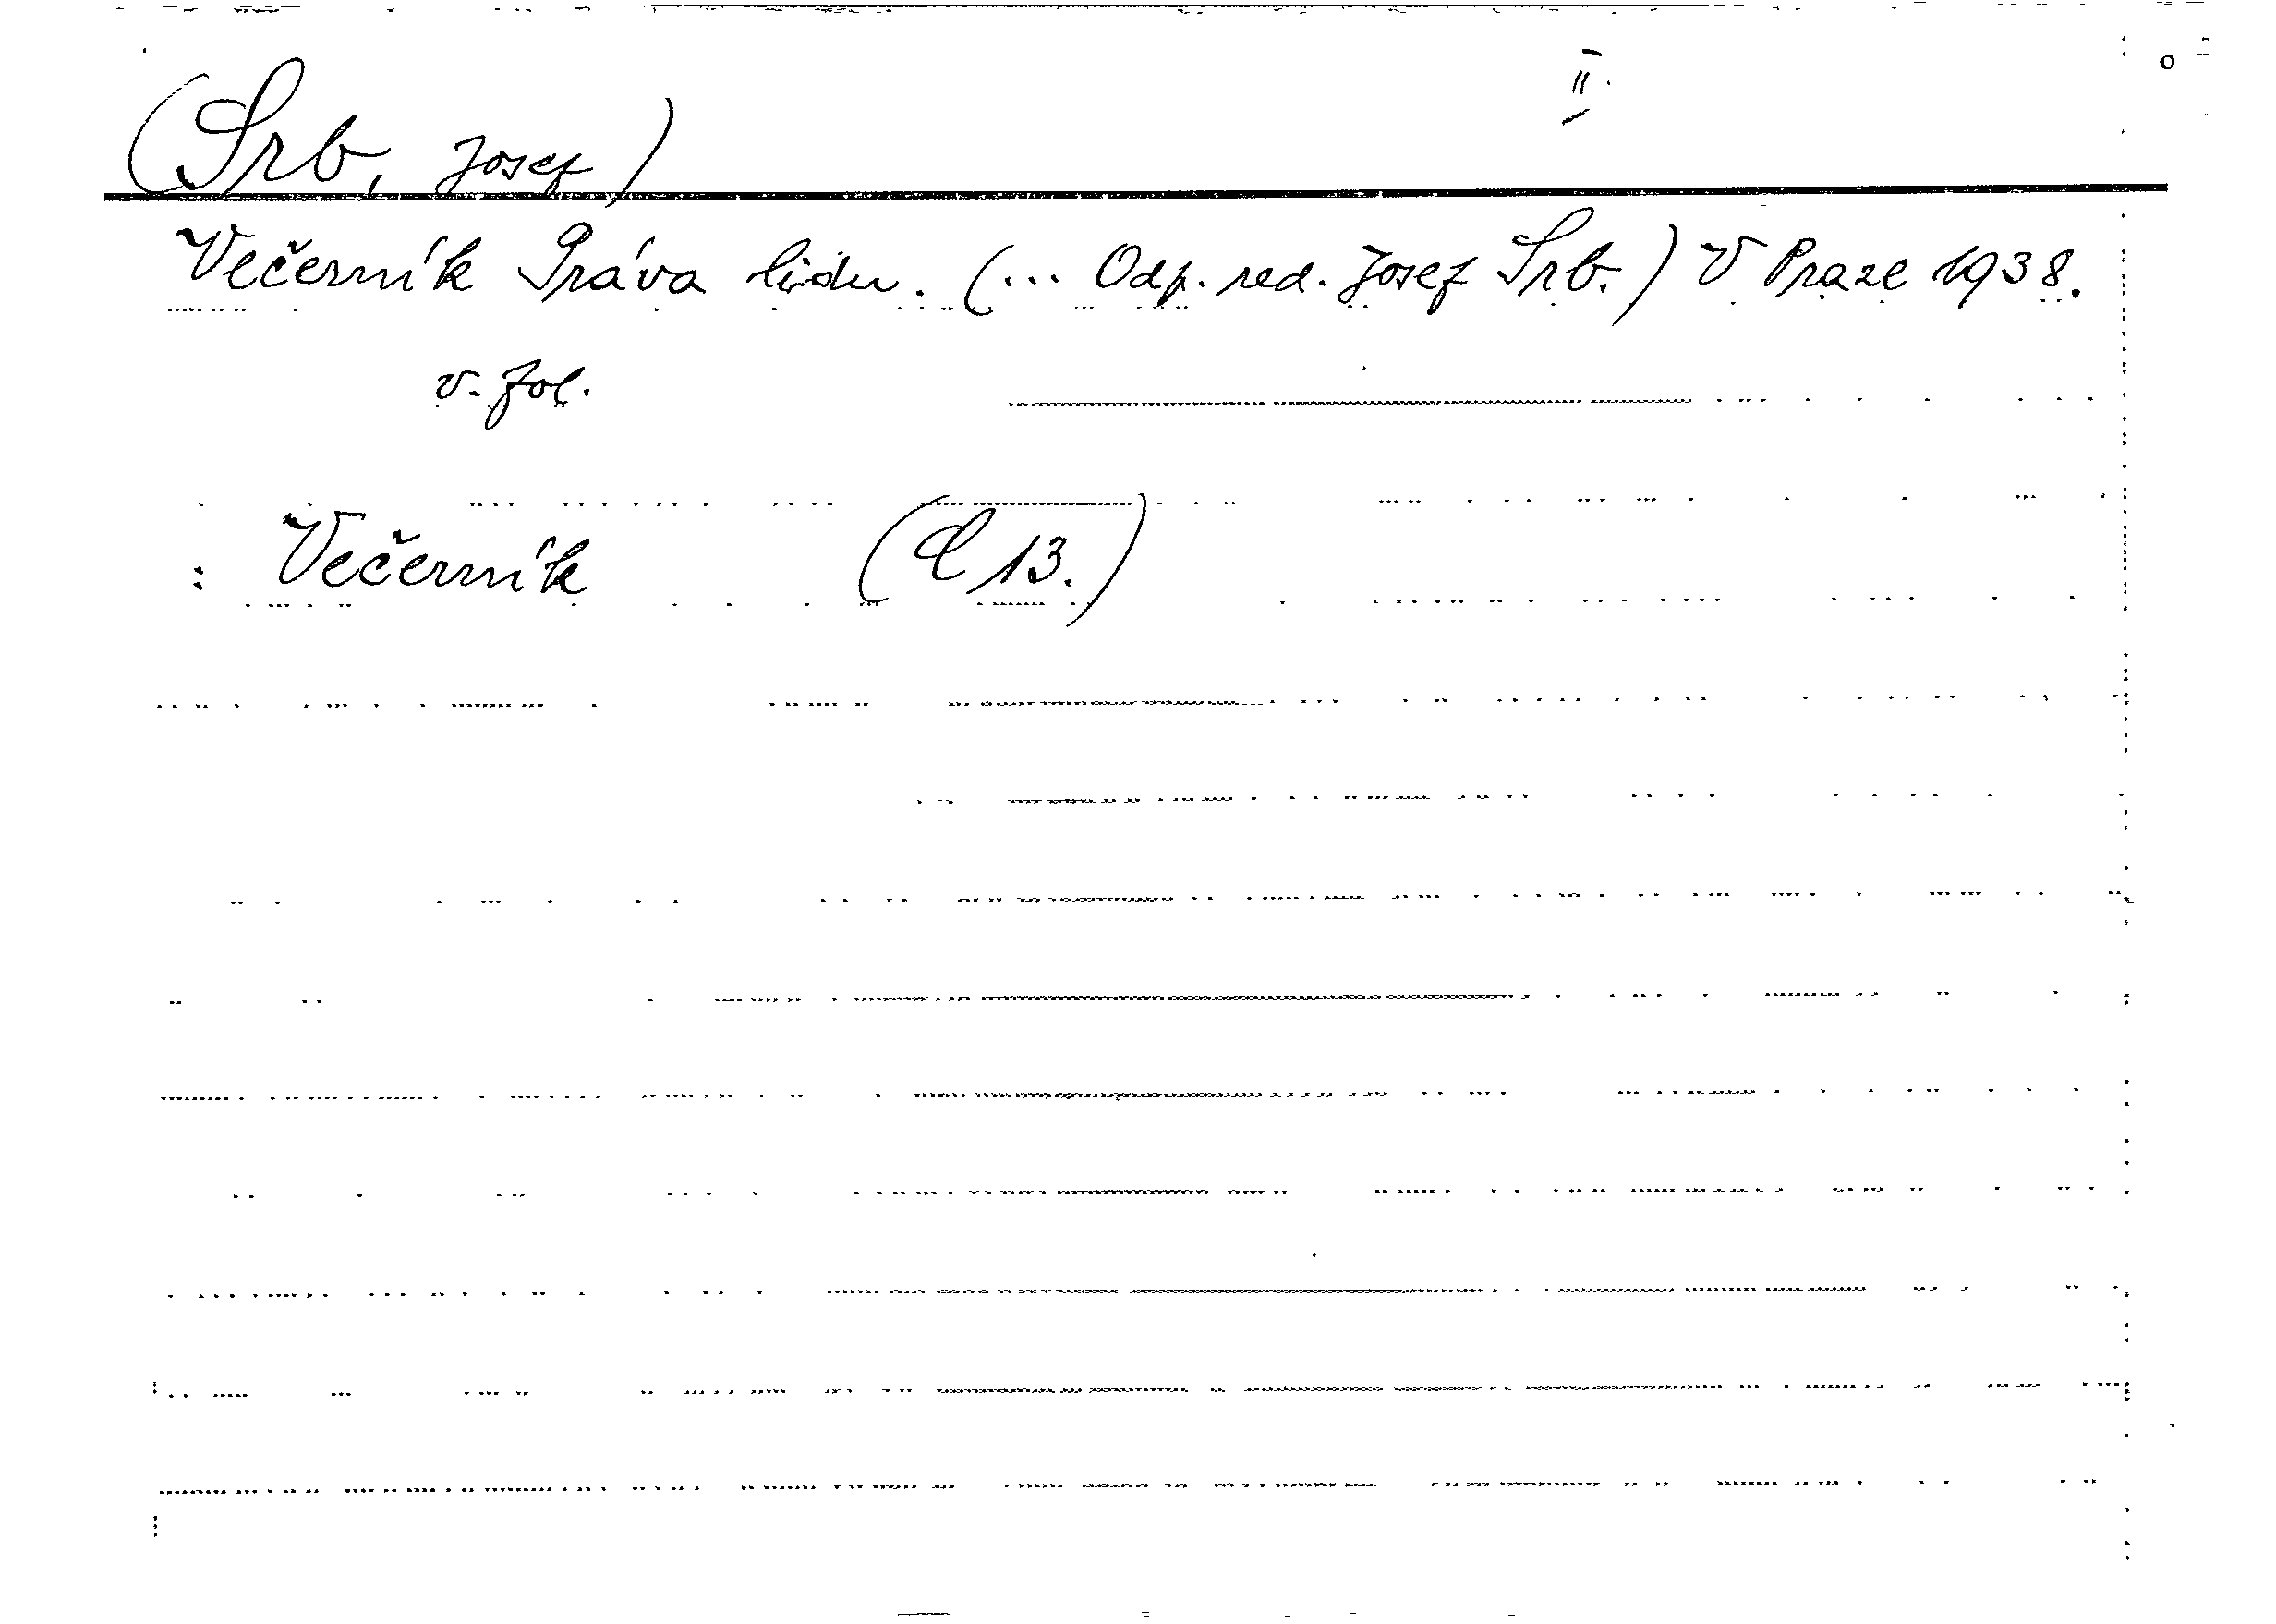 II.
(Srb, Josef)
Večerník Práva lidu. (... Odp. red. Josef Srb.) V Praze 1938.
v. fol.
: Večerník (Q 13.)